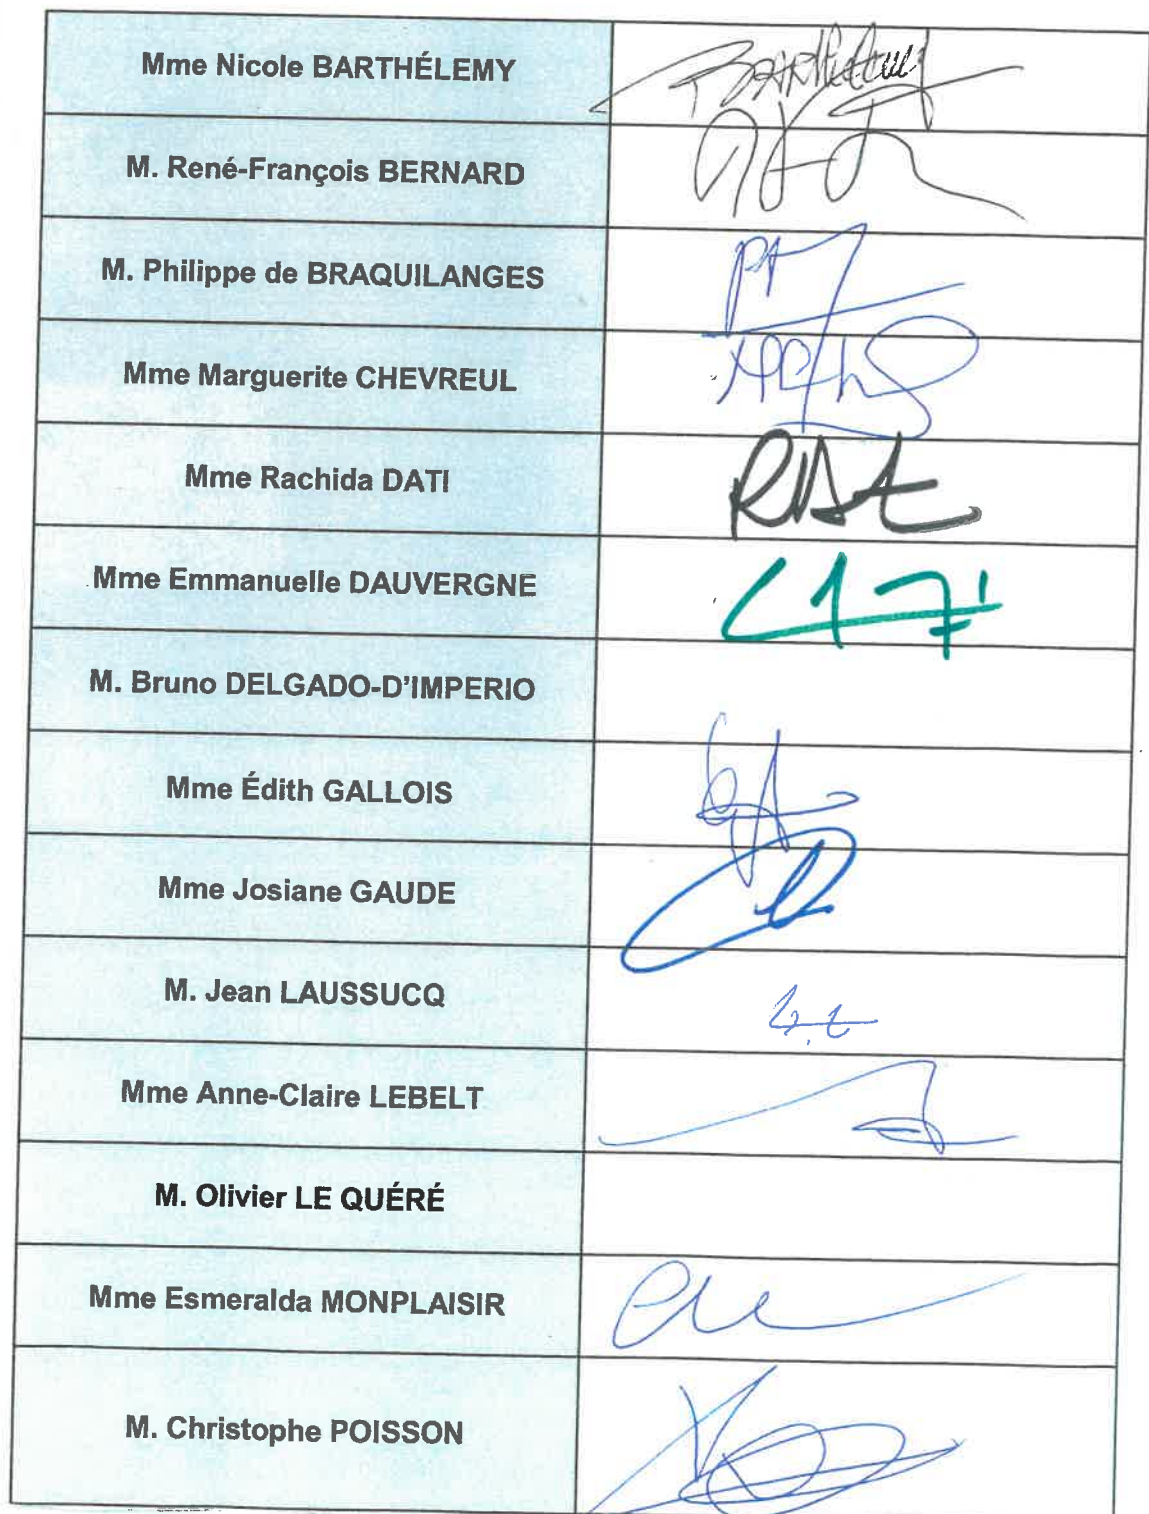 Mme Nicole BARTHÉLEMY
M. René-François BERNARD
M. Philippe de BRAQUILANGES
Mme Marguerite CHEVREUL
Mme Rachida DATI
Mme Emmanuelle DAUVERGNE
M. Bruno DELGADO-D'IMPERIO
Mme Édith GALLOIS
Mme Josiane GAUDE
M. Jean LAUSSUCQ
Mme Anne-Claire LEBELT
M. Olivier LE QUÉRÉ
Mme Esmeralda MONPLAISIR
M. Christophe POISSON